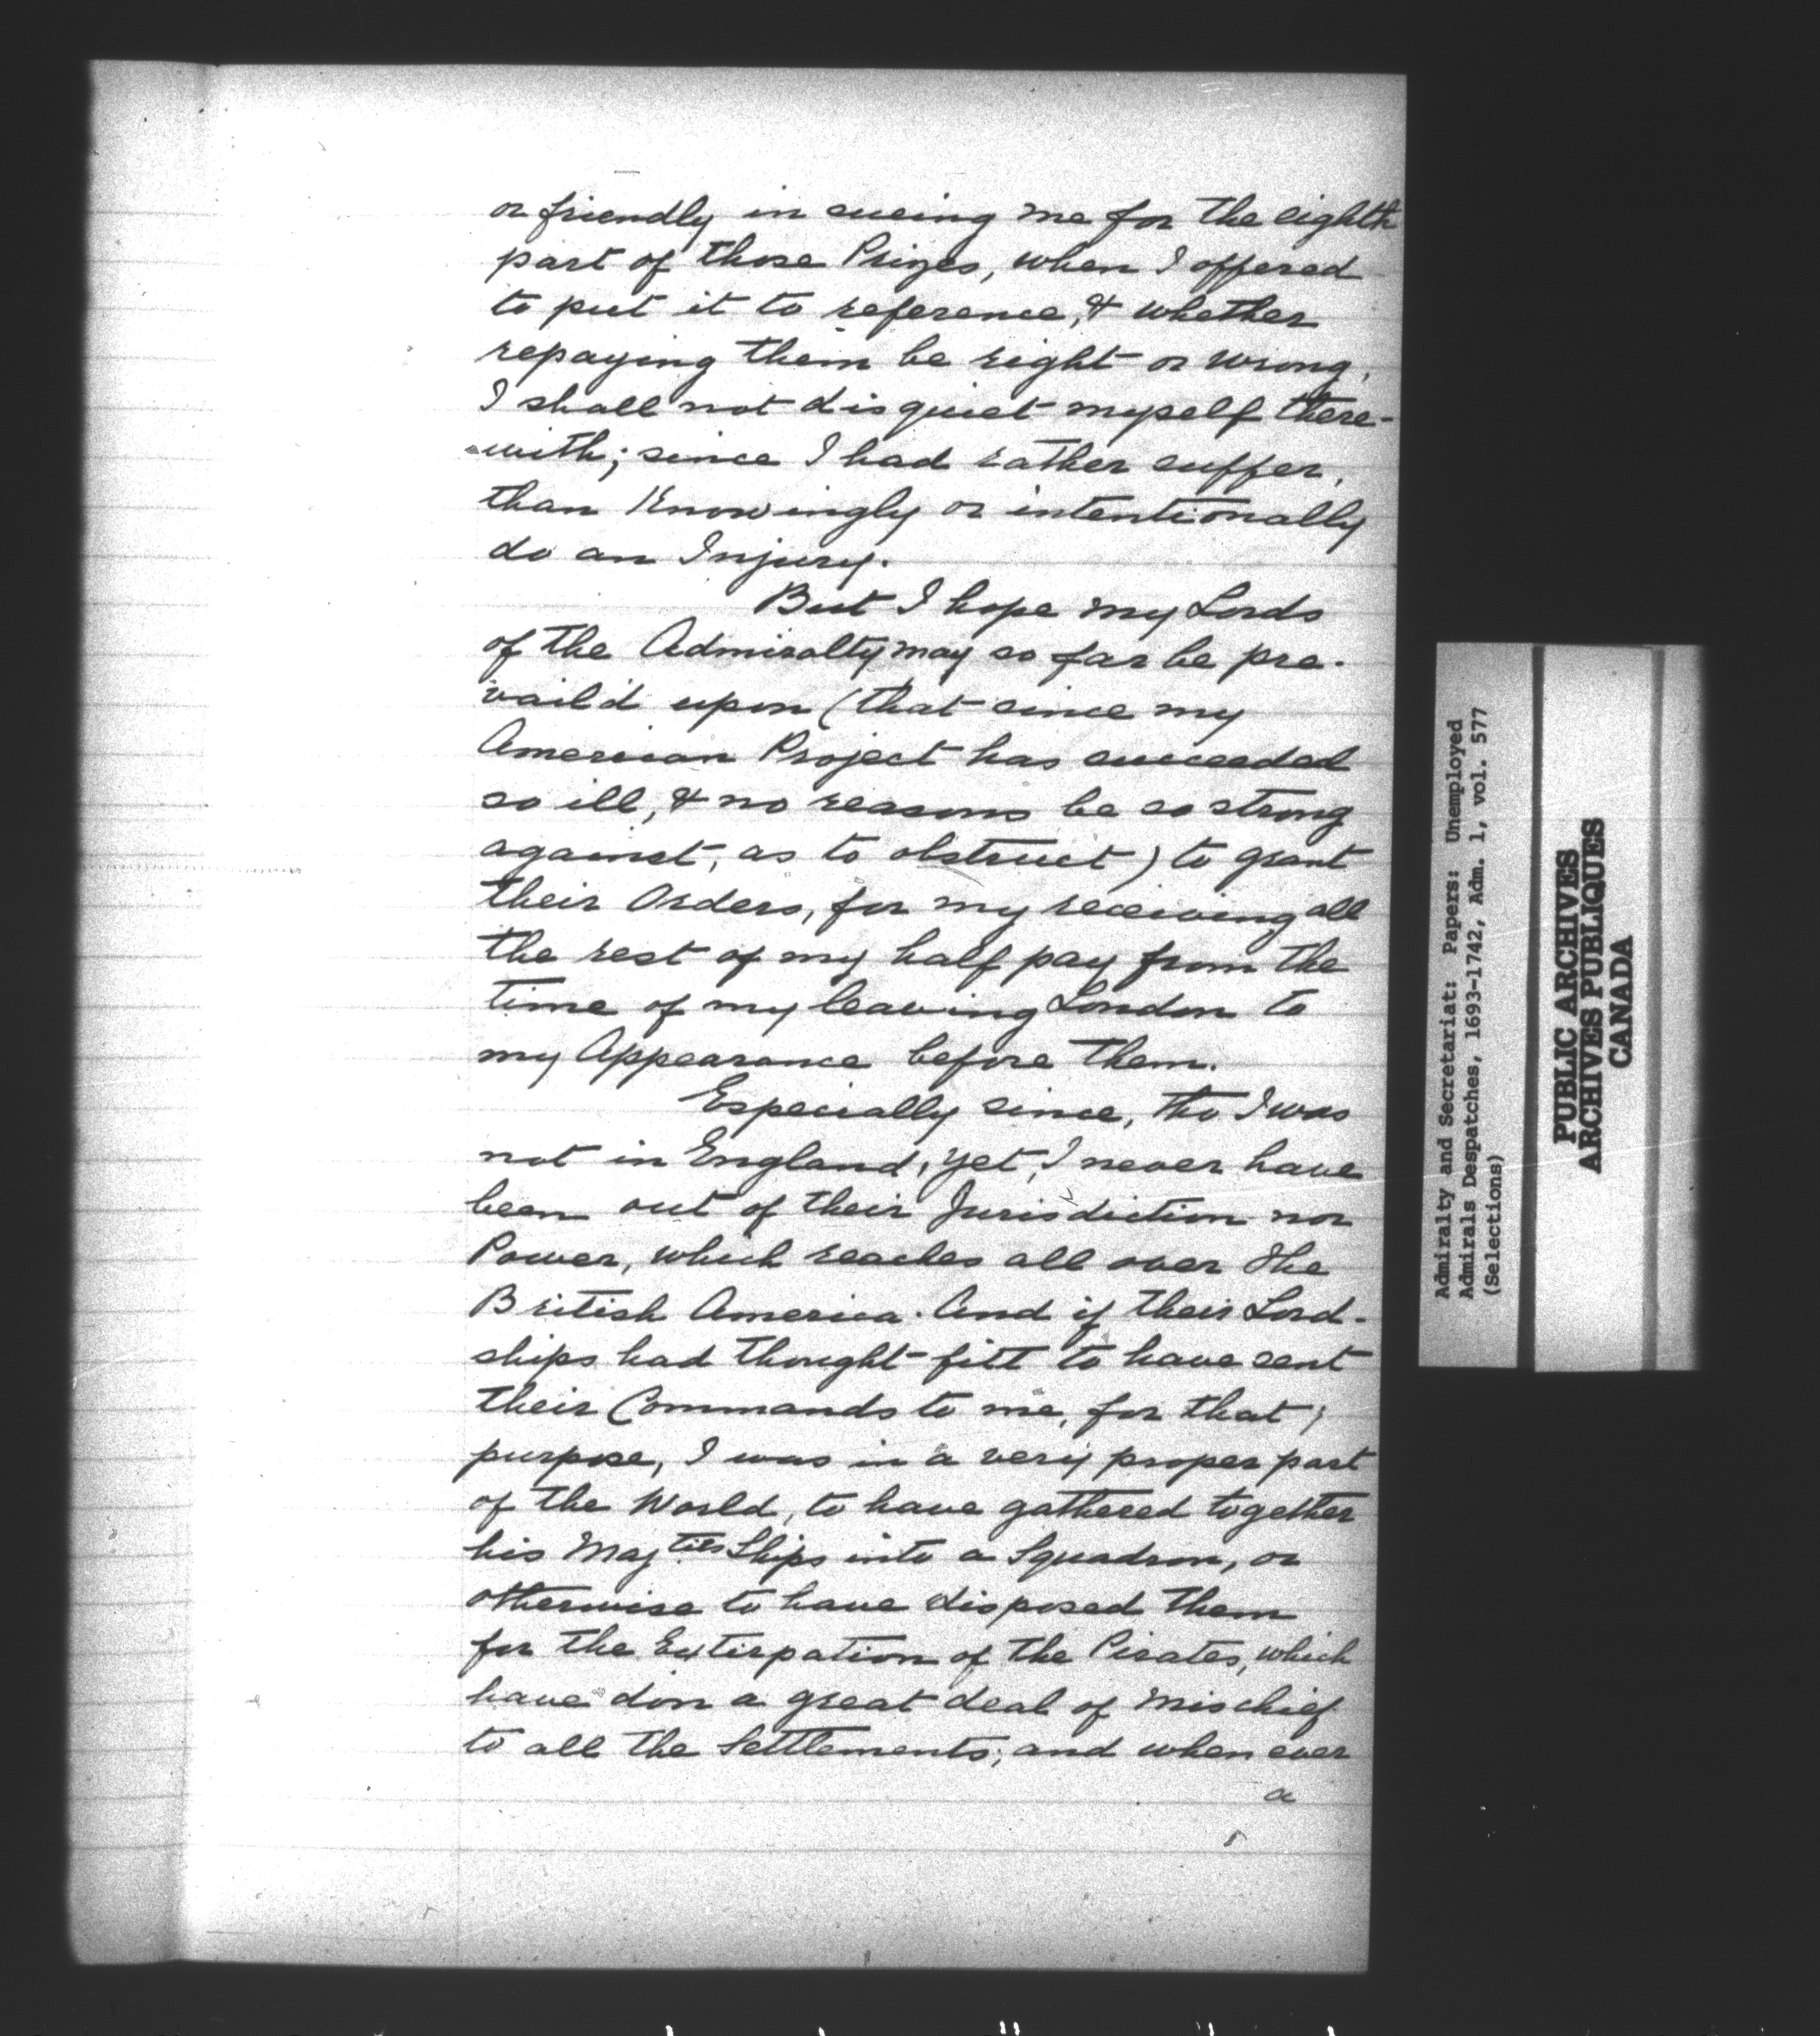 or friendly in sueing me for the eighth
part of those Prizes, when I offered
to put it to reference, & whether
repaying them be right or wrong,
I shall not disquiet myself there-
with; since I had rather suffer,
than Knowingly or intentionally
do an Injury.
But I hope my Lords
of the Admiralty may so far be pre-
vail'd upon (that since my
American Project has succeeded
so ill, & no reasons be so strong
against, as to obstruct) to grant
their Orders, for my receiving all
the rest of my half pay from the
time of my leaving London to
my Appearance before them.
Especially since, tho I was
not in England, yet, I never have
been out of their Jurisdiction nor
Power, which reaches all over the
British America. And if their Lord-
ships had thought fitt to have sent
their Commands to me, for that;
purpose, I was in a very proper part
of the World, to have gathered together
his Maj.ties Ships into a Squadron, or
otherwise to have disposed them
for the Extirpation of the Pirates, which
have don a great deal of Mischief
to all the Settlements; and when ever
a
Admiralty and Secretariat: Papers: Unemployed
Admirals Despatches, 1693-1742, Adm. 1, vol. 577
(Selections)
PUBLIC ARCHIVES
ARCHIVES PUBLIQUES
CANADA